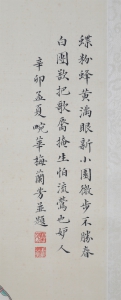 蝶粉蜂黃滿眼新小園微步不勝春
白團欲把歌脣掩生怕流鶯也妒人
辛卯孟夏畹華梅蘭芳並題